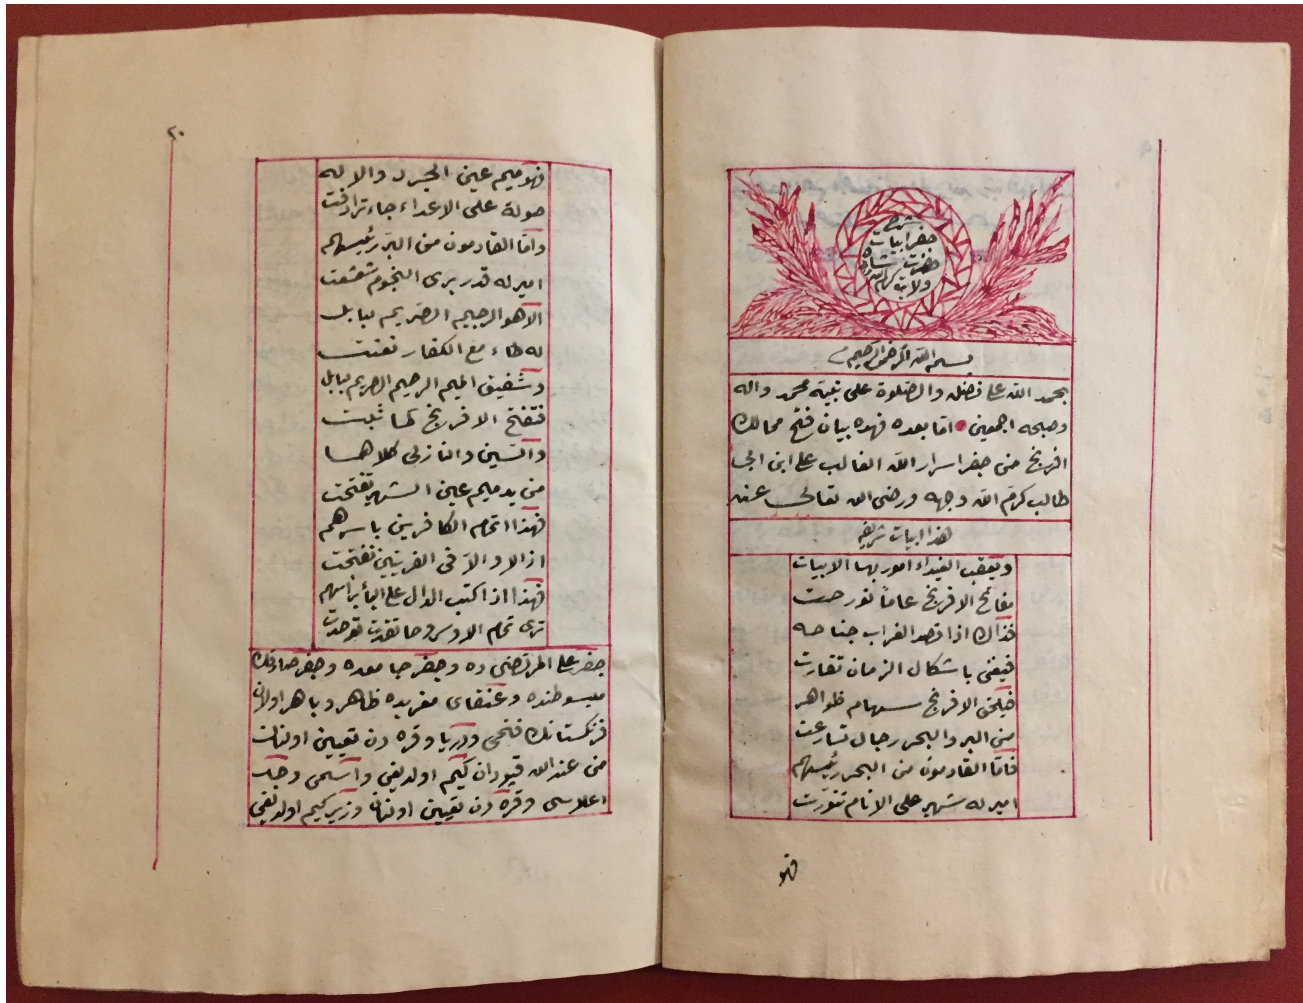 شرح
جفر ابيات
حضرت شاه
ولايت كرم الله
بسم الله الرحمن الرحيم
بحمد الله على فضله والصلوة على نبيه محمد واله
وصحبه اجمعين اما بعده فهذه بيان فتح ممالك
افرنج من جفر اسرار الله الغالب على ابن ابى
طالب كرم الله وجهه ورضى الله تعالى عنه
هذا ابيات شريفه
ويعقب الغيداء امور بها الابيات
مفاتح الافرنج عاماً نورحت
فذاك اذا قصد الغراب جناحه
فيفنى باشكال الزمان تقارت
فيلحق الافرنج سهام ظواهر
من البر والبحر رجال تسارعت
فاما القادمون من البحر رئيسهم
امير له شهير على الانام تنورت
فهو
٢٠
فهو ميم عين الجرد والاله
صولة على الاعداء جاء ترادفت
واما القادمون من البر رئيسهم
امير له قدر يرى النجوم شعشعت
الا هو الرحيم الصريم ببابل
له طاء مع الكفار تفنت
وشفيق الميم الرحيم الصريم ببابل
فتفتح الافرنج لما ثبلت
والسين والنازلى كلاهما
من يد ميم عين الشهير تفتحت
فهذا اتمام الكافرين باسرهم
اذ الا والا فى القريتين تفتحت
فهذا اذا كتب الدال على البأبرأسهم
ترى تمام الاروس وحا تفرت توحدت
جفر على المرتضى ده وجفر جامعده وجفر صادقك
مبسوطنده وعنقاى مغربده ظاهر وباهر اولان
فرنكستانك فتحى ودريا وقره دن تعيين اولنان
من عند الله قپودان كيم اولديغى واسمى وجد
اعلاسى وقره دن تعيين اولنان وزير كيم اولديغى